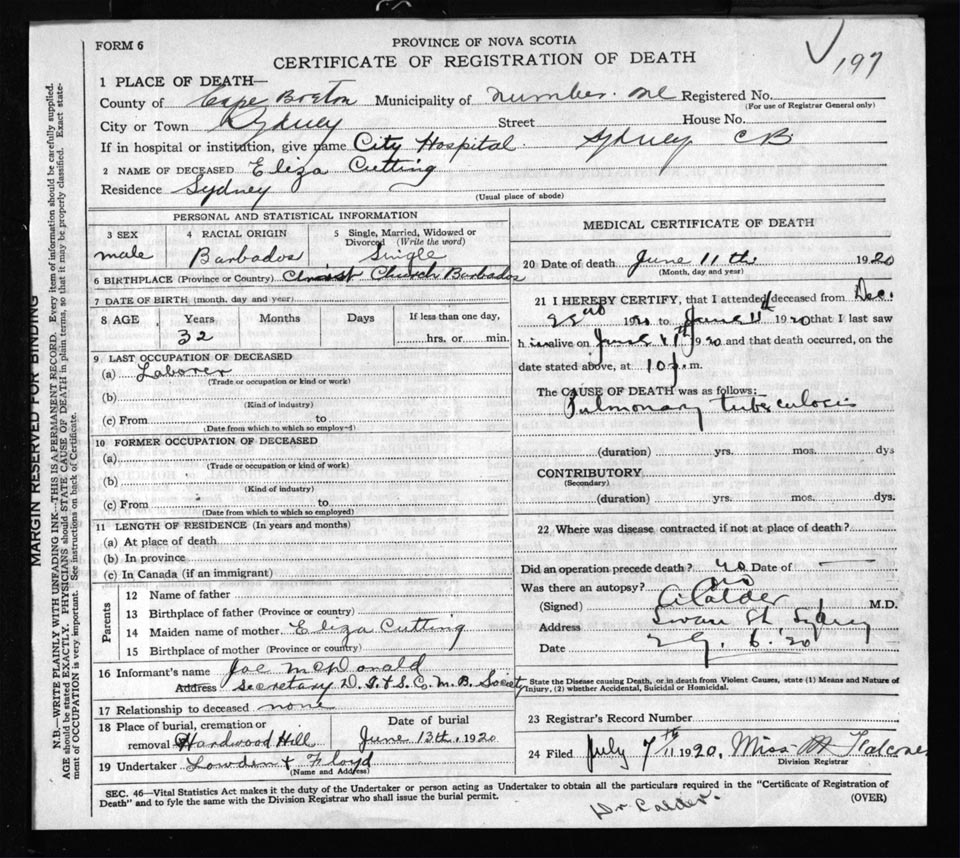 197
FORM 6
PROVINCE OF NOVA SCOTIA
CERTIFICATE OF REGISTRATION OF DEATH
1 PLACE OF DEATH—
County of Cape Breton Municipality of number one Registered No.
(For use of Registrar General only)
City or Town Sydney Street House No.
If in hospital or institution, give name City Hospital Sydney CB
2 NAME OF DECEASED Eliza Cutting
Residence Sydney
(Usual place of abode)
PERSONAL AND STATISTICAL INFORMATION
3 SEX 4 RACIAL ORIGIN 5 Single, Married, Widowed or Divorced (Write the word)
male Barbados Single
6 BIRTHPLACE (Province or Country) Christ Church Barbados
7 DATE OF BIRTH (month, day and year)
8 AGE Years Months Days If less than one day,
32 hrs. or min.
9 LAST OCCUPATION OF DECEASED
(a) Laborer
(Trade or occupation or kind of work)
(b)
(Kind of industry)
(c) From to
(Date from which to which so employed)
10 FORMER OCCUPATION OF DECEASED
(a)
(Trade or occupation or kind of work)
(b)
(Kind of industry)
(c) From to
(Date from which to which so employed)
11 LENGTH OF RESIDENCE (In years and months)
(a) At place of death
(b) In province
(c) In Canada (if an immigrant)
Parents
12 Name of father
13 Birthplace of father (Province or country)
14 Maiden name of mother Eliza Cutting
15 Birthplace of mother (Province or country)
16 Informant's name Joe McDonald
Address Secretary D. I. & S. C. M. B. Society
17 Relationship to deceased none
18 Place of burial, cremation or Date of burial
removal Hardwood Hill June 13th, 1920
19 Undertaker Lowden & Floyd
(Name and Address)
MEDICAL CERTIFICATE OF DEATH
20 Date of death June 11th 1920
(Month, day and year)
21 I HEREBY CERTIFY, that I attended deceased from Dec.
to June 11th 1920 that I last saw
h alive on June 11th 1920 and that death occurred, on the
date stated above, at 10 p.m.
The CAUSE OF DEATH was as follows:
Pulmonary tuberculocis
(duration) yrs. mos. dys
CONTRIBUTORY
(Secondary)
(duration) yrs. mos. dys.
22 Where was disease contracted if not at place of death?
Did an operation precede death? no Date of —
Was there an autopsy? no
(Signed) A Calder M.D.
Address Swan St. Sydney
Date 6. 20
State the Disease causing Death, or in death from Violent Causes, state (1) Means and Nature of
Injury, (2) whether Accidental, Suicidal or Homicidal.
23 Registrar's Record Number
24 Filed July 7th 1920, Miss
Division Registrar
SEC. 46—Vital Statistics Act makes it the duty of the Undertaker or person acting as Undertaker to obtain all the particulars required in the "Certificate of Registration of
Death" and to fyle the same with the Division Registrar who shall issue the burial permit.
(OVER)
Dr Calder.
MARGIN RESERVED FOR BINDING
N.B.—WRITE PLAINLY WITH UNFADING INK—THIS IS A PERMANENT RECORD. Every item of information should be carefully supplied.
AGE should be stated EXACTLY. PHYSICIANS should STATE CAUSE OF DEATH in plain terms, so that it may be properly classified. Exact state-
ment of OCCUPATION is very important. See instructions on back of Certificate.